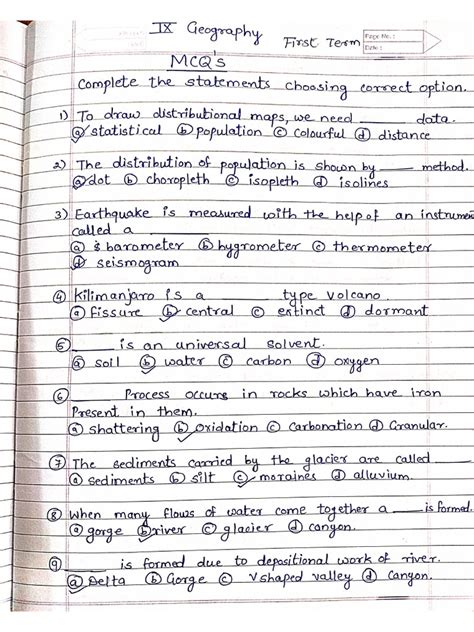 IX Geography
First Term
Page No.:
Date:
MCQ's
Complete the statements choosing correct option.
1) To draw distributional maps, we need ______ data.
ⓐ statistical ⓑ population ⓒ Colourful ⓓ distance
2) The distribution of population is shown by ____ method.
ⓐ dot ⓑ choropleth ⓒ isopleth ⓓ isolines
3) Earthquake is measured with the help of an instrument
called a ______
ⓐ barometer ⓑ hygrometer ⓒ thermometer
ⓓ seismogram
④ Kilimanjaro is a ______ type volcano.
ⓐ fissure ⓑ central ⓒ extinct ⓓ dormant
⑤ ______ is an universal solvent.
ⓐ soil ⓑ water ⓒ carbon ⓓ oxygen
⑥ ______ Process occurs in rocks which have iron
Present in them.
ⓐ shattering ⓑ oxidation ⓒ Carbonation ⓓ Granular.
⑦ The sediments carried by the glacier are called ____
ⓐ sediments ⓑ silt ⓒ moraines ⓓ alluvium.
⑧ When many flows of water come together a ____ is formed.
ⓐ gorge ⓑ river ⓒ glacier ⓓ canyon.
⑨ ____ is formed due to depositional work of river.
ⓐ Delta ⓑ Gorge ⓒ V shaped valley ⓓ Canyon.